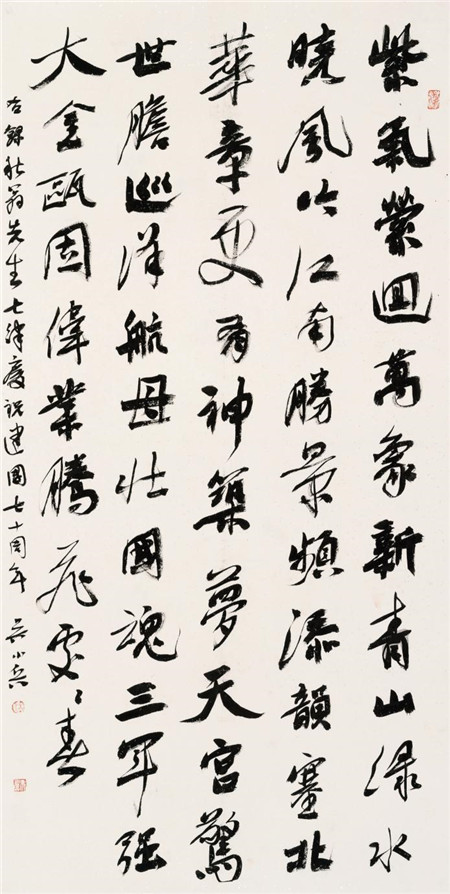 紫氣縈迴萬象新青山綠水
曉風吟江南勝景頻添韻塞北
華章更有神築夢天宮驚
世膽巡洋航母壯國魂三軍强
大金甌固偉業騰飛處〻春
右錄秋翁先生七律慶祝建國七十周年 吴小兵